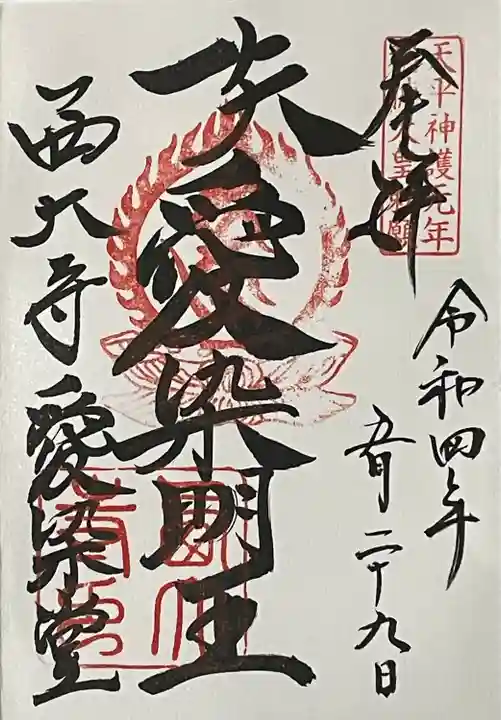 天平神護元年
奉拝
令和四年
五月二十九日
大愛染明王
西大寺愛染堂